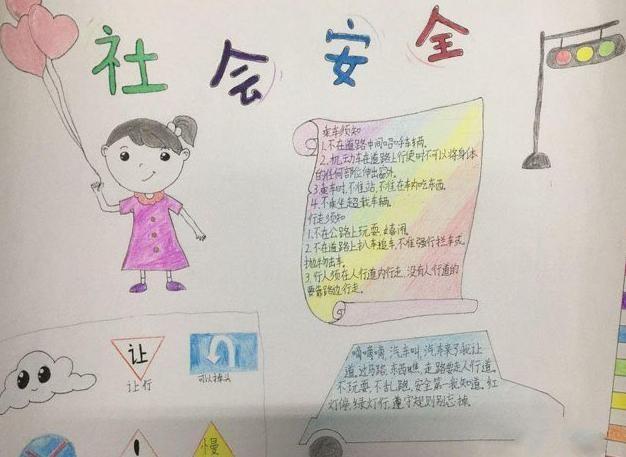 社会安全
乘车须知
1.不在道路中间招呼车辆。
2.机动车在道路上行使时不可以将身体
的任何部位伸出窗外。
3乘车时,不准站,不准在车内吃东西。
4.不乘坐超载车辆。
行走须知
1.不在公路上玩耍、嬉闹。
2.不在道路上扒车追车,不准强行拦车或
抛物击车。
3.行人须在人行道内行走,没有人行道的
要靠路边行走。
让
让行
可以掉头
慢
嘀嘀嘀,汽车叫,汽车来了我让
道,过马路,东西瞧,走路要走人行道。
不玩耍,不乱跑,安全第一我知道,红
灯停,绿灯行,遵守规则别忘掉。